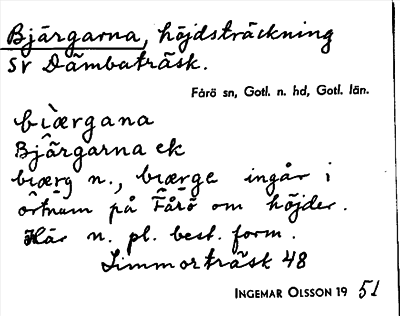 Bjärgarna, höjdsträckning
sv Dämbaträsk.
Fårö sn, Gotl. n. hd, Gotl. län.
bìærgana
Bjärgarna ek
biærg n., biærge ingår i
ortnum på Fårö om höjder.
Här n. pl. best. form.
Limmorträsk 48
INGEMAR OLSSON 19 51